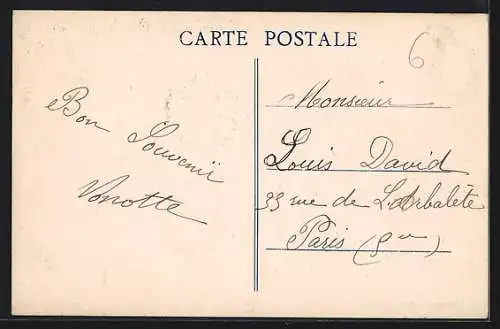 CARTE POSTALE
6
Bon
Souvenir
Vonotte
Monsieur
Louis David
33 rue de L'Arbalète
Paris (5e)